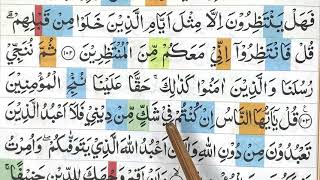 فَهَلْ يَنْتَظِرُوْنَ اِلَّا مِثْلَ اَيَّامِ الَّذِيْنَ خَلَوْا مِنْ قَبْلِهِمْ
قُلْ فَانْتَظِرُوْٓا اِنِّيْ مَعَكُمْ مِّنَ الْمُنْتَظِرِيْنَ ﴿١٠٢﴾ ثُمَّ نُنَجِّيْ
رُسُلَنَا وَالَّذِيْنَ اٰمَنُوْا كَذٰلِكَ حَقًّا عَلَيْنَا نُنْجِ الْمُؤْمِنِيْنَ
﴿١٠٣﴾ قُلْ يٰٓاَيُّهَا النَّاسُ اِنْ كُنْتُمْ فِيْ شَكٍّ مِّنْ دِيْنِيْ فَلَآ اَعْبُدُ الَّذِيْنَ
تَعْبُدُوْنَ مِنْ دُوْنِ اللّٰهِ وَلٰكِنْ اَعْبُدُ اللّٰهَ الَّذِيْ يَتَوَفّٰىكُمْ وَاُمِرْتُ
اَقِمْ وَجْهَكَ لِلدِّيْنِ حَنِيْفًا